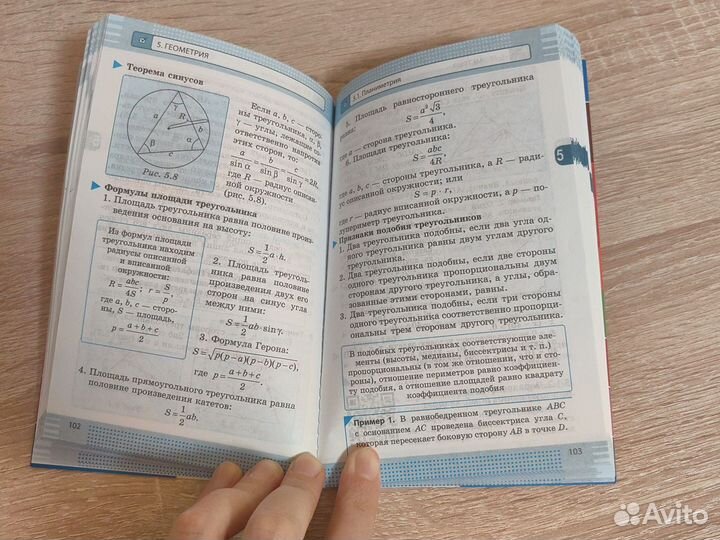 5. ГЕОМЕТРИЯ
Теорема синусов
Если a, b, c — сторо-
ны треугольника, α, β,
γ — углы, лежащие со-
ответственно напротив
этих сторон, то:
a/sin α = b/sin β = c/sin γ = 2R,
где R — радиус описан-
ной окружности
(рис. 5.8).
γ
R
a
b
α
β
c
Рис. 5.8
Формулы площади треугольника
1. Площадь треугольника равна половине произ-
ведения основания на высоту:
S = 1/2 a · h.
Из формул площади
треугольника находим
радиусы описанной
и вписанной
окружности:
R = abc/4S; r = S/p,
где a, b, c — сторо-
ны, S — площадь,
p = a+b+c/2
2. Площадь треуголь-
ника равна половине
произведения двух его
сторон на синус угла
между ними:
S = 1/2 ab · sin γ.
3. Формула Герона:
S = √p(p−a)(p−b)(p−c),
где p = a+b+c/2.
4. Площадь прямоугольного треугольника равна
половине произведения катетов:
S = 1/2 ab.
102
5.1. Планиметрия
5. Площадь равностороннего треугольника
S = a²√3/4,
где a — сторона треугольника.
6. Площади треугольника:
S = abc/4R,
где a, b, c — стороны треугольника, а R — ради-
ус описанной окружности; или
S = p · r,
где r — радиус вписанной окружности, а p — по-
лупериметр треугольника.
Признаки подобия треугольников
1. Два треугольника подобны, если два угла од-
ного треугольника равны двум углам другого
треугольника.
2. Два треугольника подобны, если две стороны
одного треугольника пропорциональны двум
сторонам другого треугольника, а углы, обра-
зованные этими сторонами, равны.
3. Два треугольника подобны, если три стороны
одного треугольника соответственно пропорци-
ональны трем сторонам другого треугольника.
В подобных треугольниках соответствующие эле-
менты (высоты, медианы, биссектрисы и т. п.)
пропорциональны (в том же отношении, что и сто-
роны), отношение периметров равно коэффициен-
ту подобия, а отношение площадей равно квадрату
коэффициента подобия
Пример 1. В равнобедренном треугольнике ABC
с основанием AC проведена биссектриса угла C,
которая пересекает боковую сторону AB в точке D.
103
5
Avito